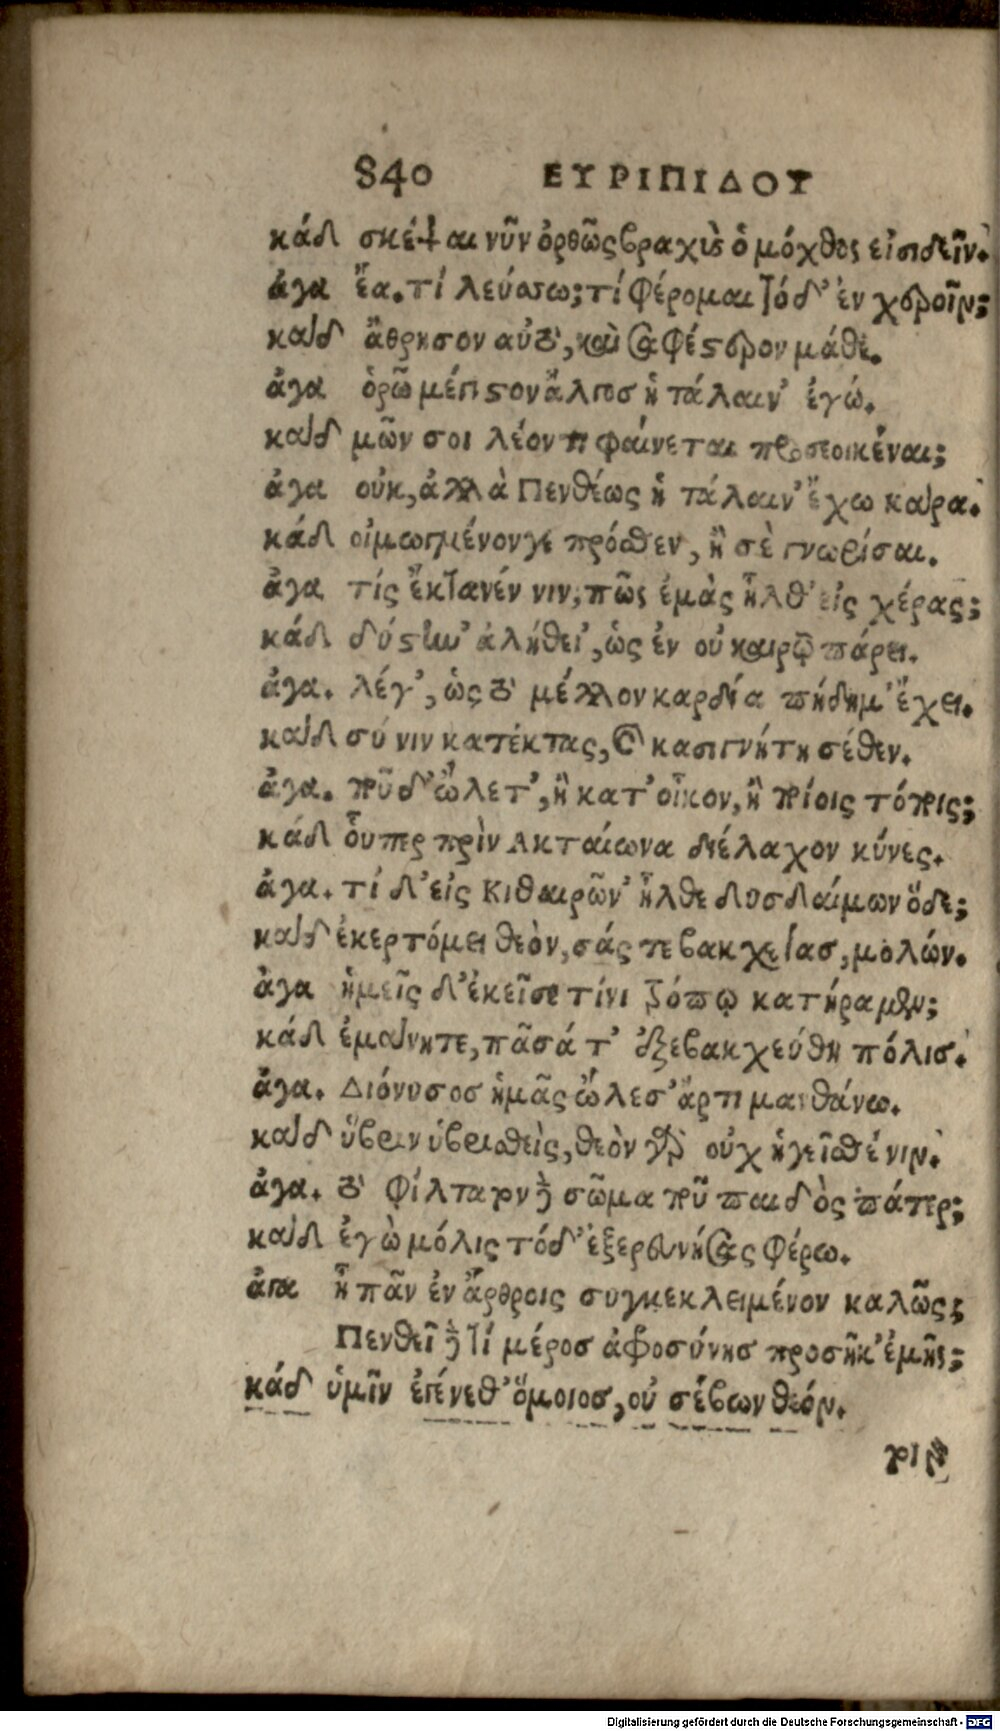 840 ΕΥΡΙΠΙΔΟΥ
κάδ σκέψαι νῦν ὀρθῶς βραχὺς ὁ μόχθος εἰσιδεῖν.
ἀγα ἔα. τί λεύσσω; τί φέρομαι τόδ' ἐν χεροῖν;
κάδ ἄθρησον αὐτὸ, καὶ σαφέστερον μάθε.
ἀγα ὁρῶ μέγιστον ἄλγοσ ἡ τάλαιν' ἐγώ.
κάδ μῶν σοι λέοντι φαίνεται προσεοικέναι;
ἀγα οὐκ, ἀλλὰ Πενθέως ἡ τάλαιν' ἔχω κάρα.
κάδ οἰμωγμένον γε πρόσθεν, ἢ σὲ γνωρίσαι.
ἀγα τίς ἔκτανέν νιν; πῶς ἐμὰς ἦλθ' εἰς χέρας;
κάδ δύστην' ἀλήθει', ὡς ἐν οὐ καιρῷ πάρει.
ἀγα. λέγ', ὡς τὸ μέλλον καρδία πήδημ' ἔχει.
κάδ σύ νιν κατέκτας, καὶ κασιγνήτη σέθεν.
ἀγα. ποῦ δ' ὤλετ', ἢ κατ' οἶκον, ἢ ποίοις τόποις;
κάδ οὗπερ πρὶν Ακταίωνα διέλαχον κύνες.
ἀγα. τί δ' εἰς Κιθαιρῶν' ἦλθε δυσδαίμων ὅδε;
κάδ ἐκερτόμει θεὸν, σάς τε βακχείασ, μολών.
ἀγα ἡμεῖς δ' ἐκεῖσε τίνι τρόπῳ κατήραμεν;
κάδ ἐμάνητε, πᾶσά τ' ἐξεβακχεύθη πόλισ.
ἀγα. Διόνυσοσ ἡμᾶς ὤλεσ' ἄρτι μανθάνω.
κάδ ὕβριν ὑβρισθεὶς, θεὸν γὰρ οὐχ ἡγεῖσθέ νιν.
ἀγα. τὸ φίλτατον δὲ σῶμα ποῦ παιδὸς πάτερ;
κάδ ἐγὼ μόλις τόδ' ἐξερευνήσας φέρω.
ἀγα ἦ πᾶν ἐν ἄρθροις συγκεκλειμένον καλῶς;
Πενθεῖ δὲ τί μέροσ ἀφροσύνησ προσῆκ' ἐμῆς;
κάδ ὑμῖν ἐγένεθ' ὅμοιοσ, οὐ σέβων θεόν.